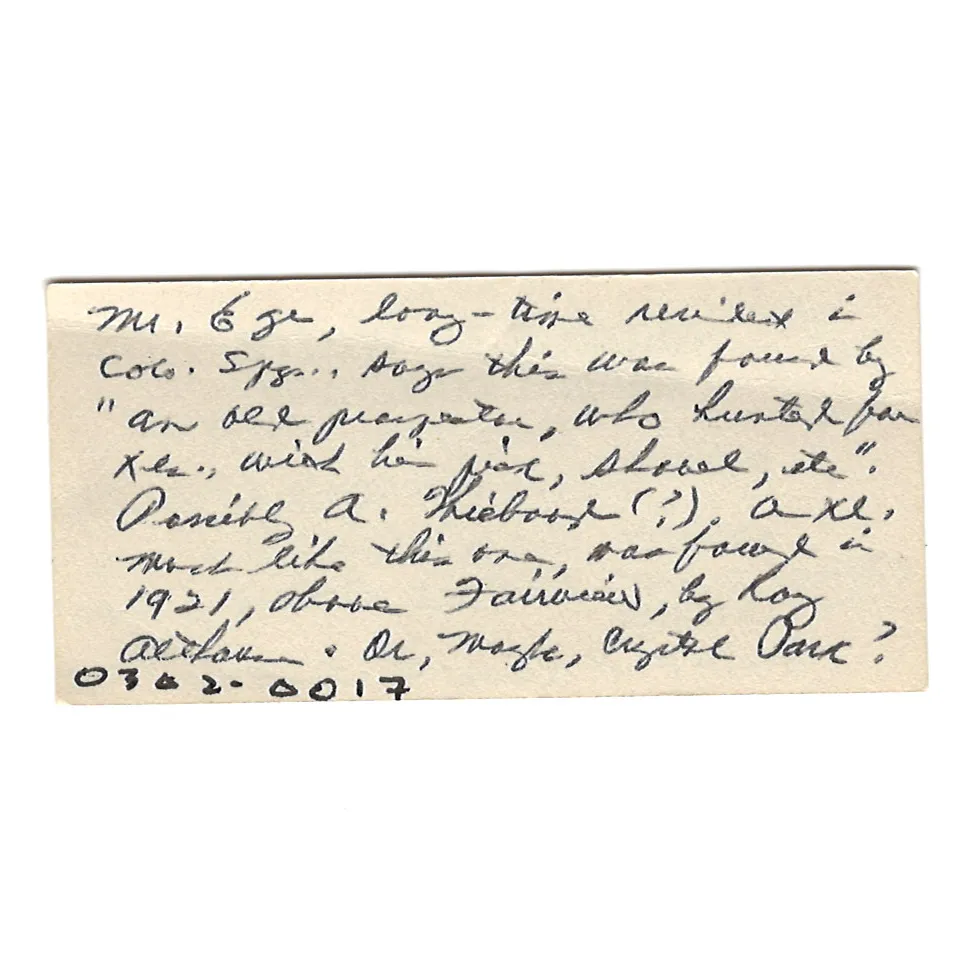 Mr. Ege, long-time resident in
Colo. Spgs., says this was found by
"an old prospector, who hunted for
xls., with his pick, shovel, etc".
Possibly A. (?). A xl.
much like this one, was found in
1921, above Fairview, by Roy
. Or, maybe, Crystal Park?
0302-0017